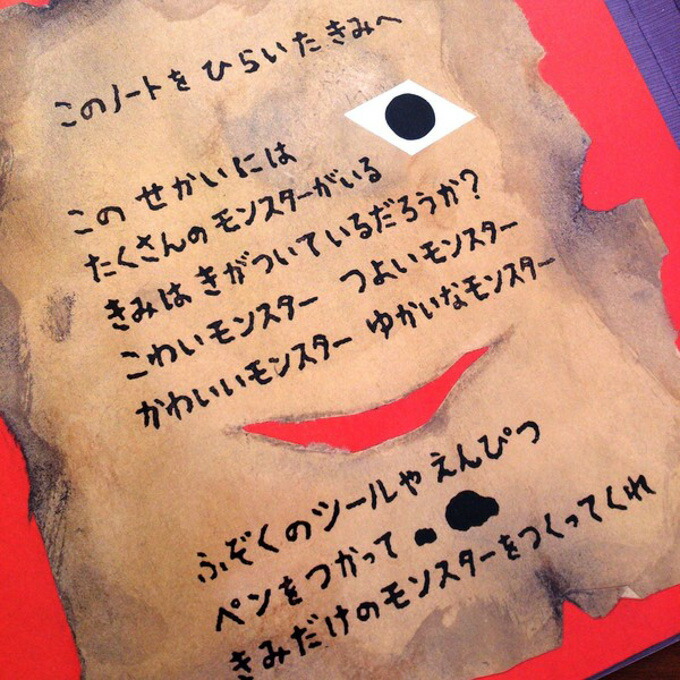 このノートを ひらいた きみへ
この せかいには
たくさんの モンスターがいる
きみは きがついているだろうか?
こわいモンスター つよいモンスター
かわいいモンスター ゆかいなモンスター
ふぞくのツールや えんぴつ
ペンを つかって
きみだけのモンスターを つくってくれ